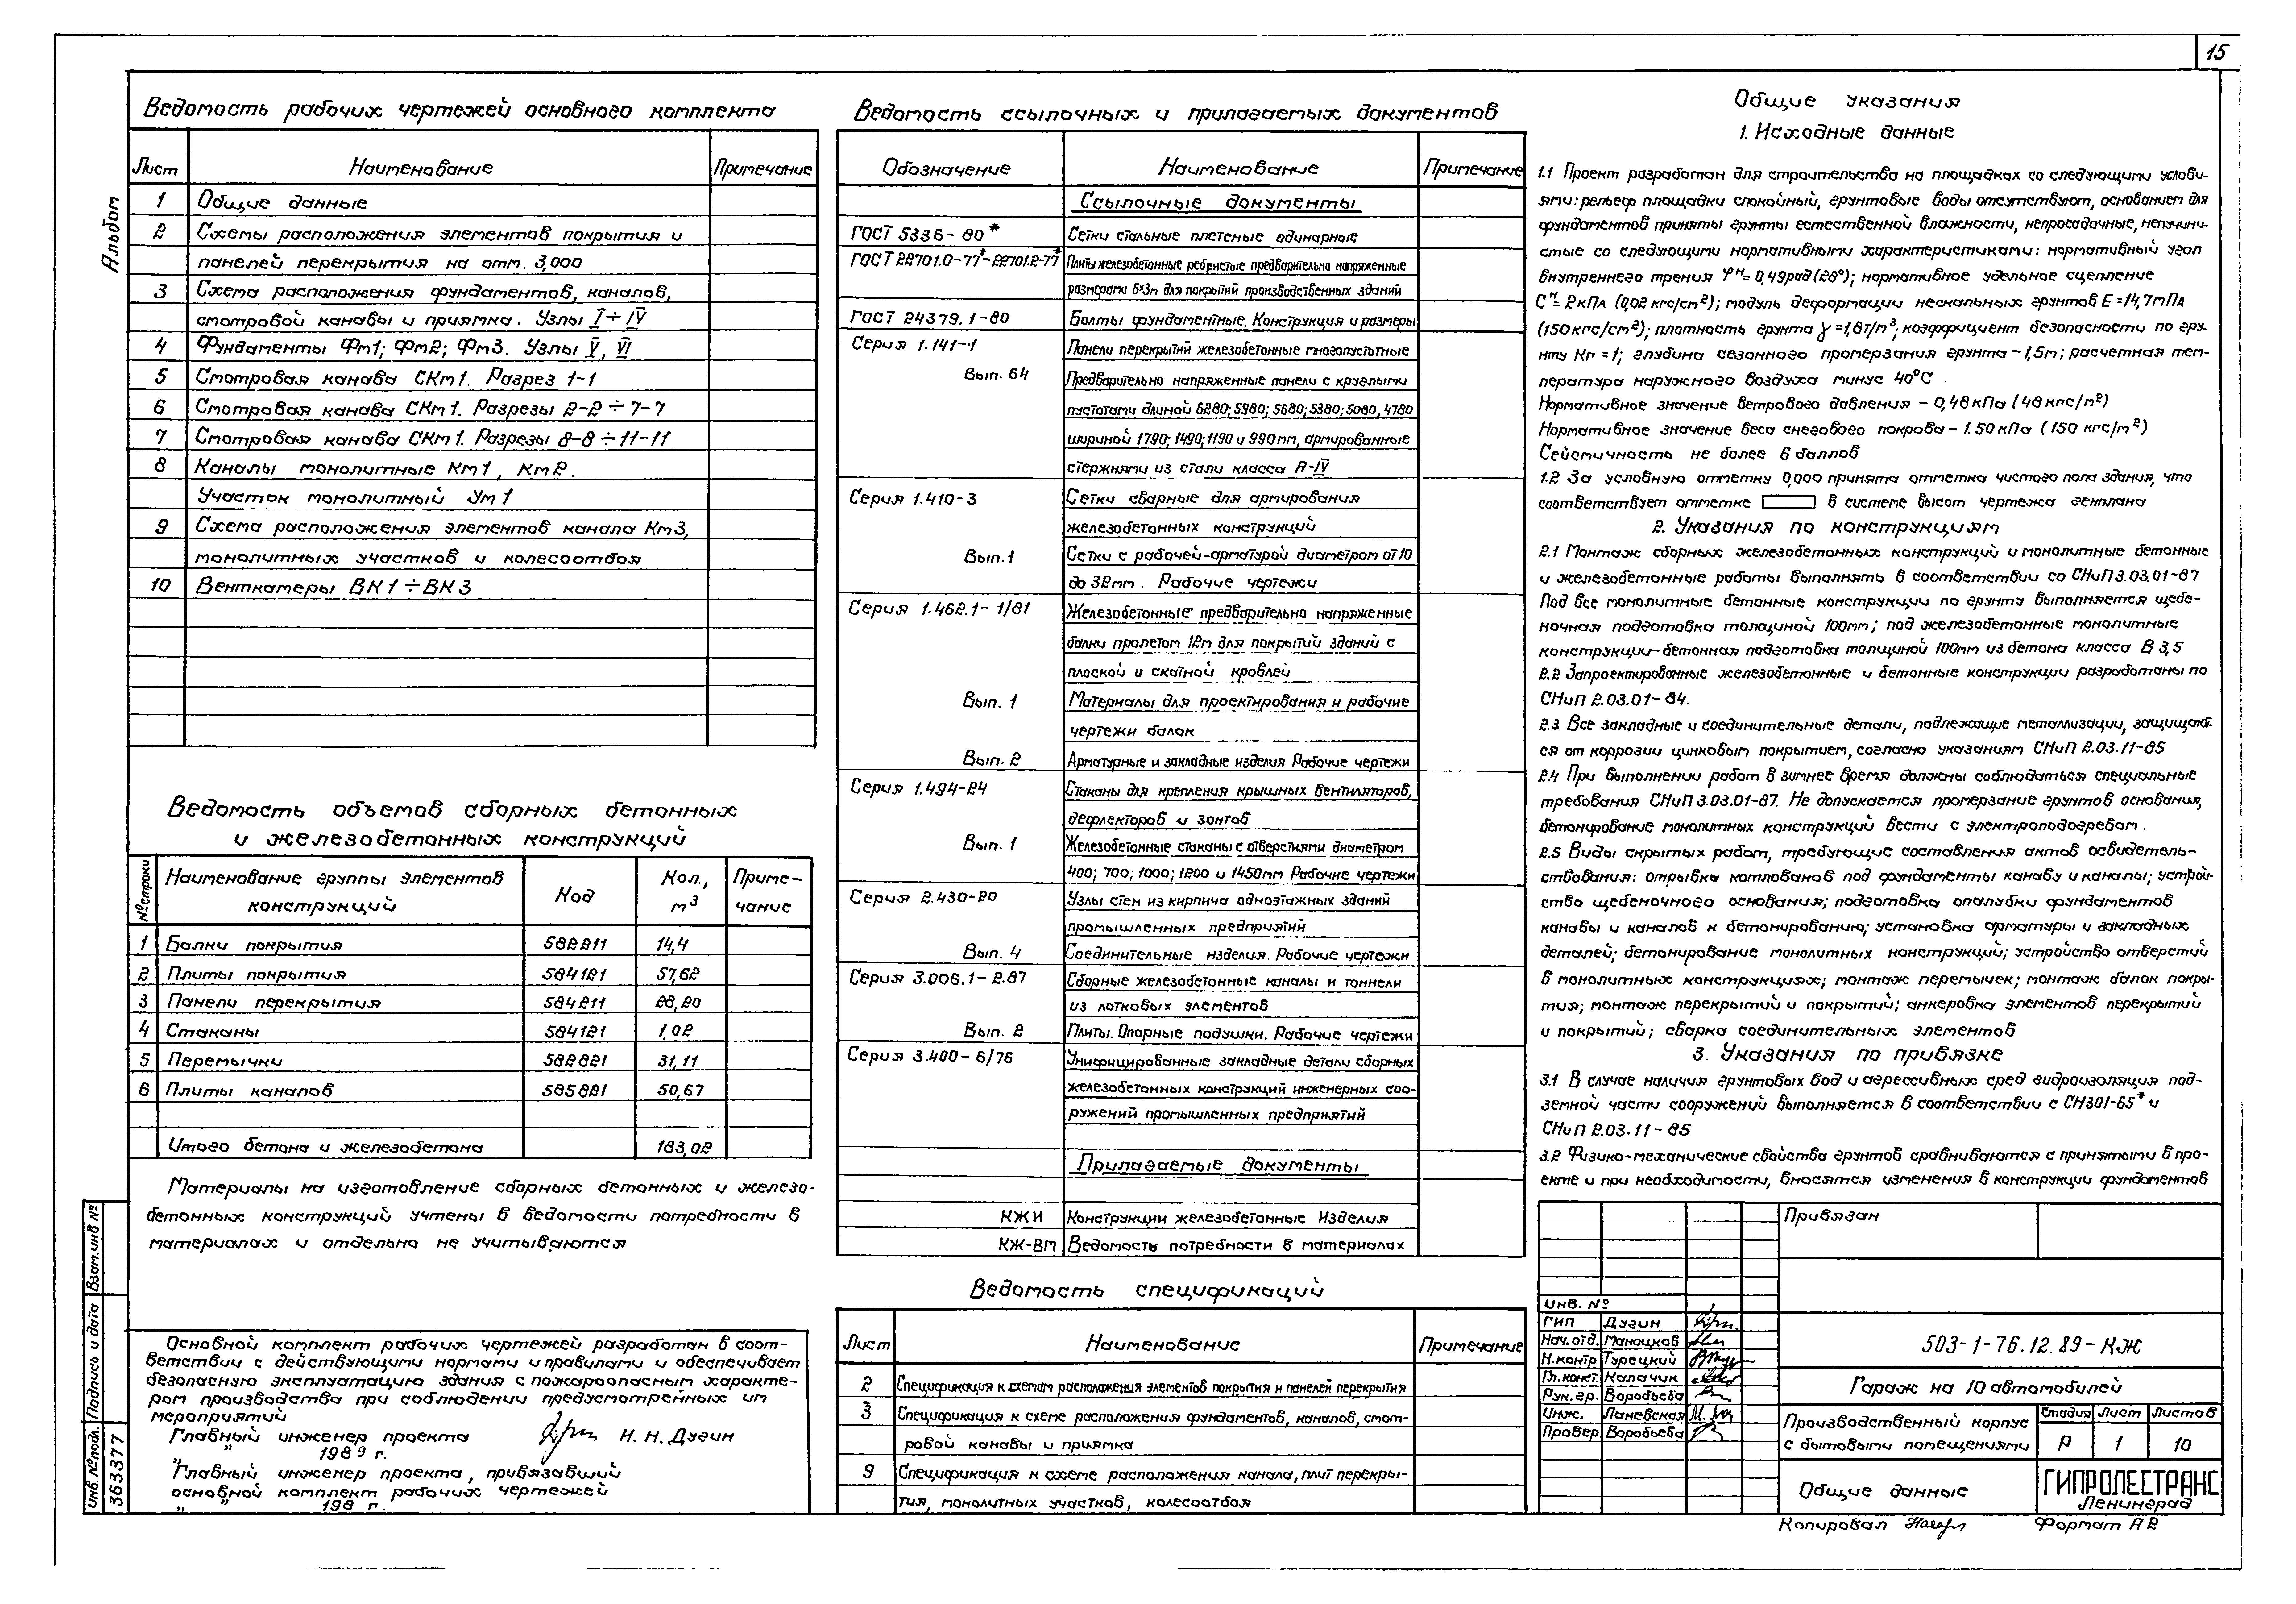 15
Альбом
Ведомость рабочих чертежей основного комплекта
Лист Наименование Примечание
1 Общие данные
2 Схемы расположения элементов покрытия и
панелей перекрытия на отм. 3,000
3 Схема расположения фундаментов, каналов,
смотровой канавы и приямка. Узлы I÷IV
4 Фундаменты Фм1; Фм2; Фм3. Узлы V, VI
5 Смотровая канава СКм1. Разрез 1-1
6 Смотровая канава СКм1. Разрезы 2-2÷7-7
7 Смотровая канава СКм1. Разрезы 8-8÷11-11
8 Каналы монолитные Км1, Км2.
Участок монолитный Ум1
9 Схема расположения элементов канала Км3,
монолитных участков и колесоотбоя
10 Венткамеры ВК1÷ВК3
Ведомость объемов сборных бетонных
и железобетонных конструкций
№ строки Наименование группы элементов конструкций Код Кол., м³ Приме-
чание
1 Балки покрытия 582211 14,4
2 Плиты покрытия 584121 57,62
3 Панели перекрытия 584211 28,20
4 Стаканы 584121 1,02
5 Перемычки 582821 31,11
6 Плиты каналов 585821 50,67
Итого бетона и железобетона 183,02
Материалы на изготовление сборных бетонных и железо-
бетонных конструкций учтены в ведомости потребности в
материалах и отдельно не учитываются
Основной комплект рабочих чертежей разработан в соот-
ветствии с действующими нормами и правилами и обеспечивает
безопасную эксплуатацию здания с пожароопасным характе-
ром производства при соблюдении предусмотренных им
мероприятий
Главный инженер проекта Н. Н. Дугин
" 1989 г.
"Главный инженер проекта, привязавший
основной комплект рабочих чертежей
" " 198 г.
Взам. инв №
Подпись и дата
Инв. № подл.
363377
Ведомость ссылочных и прилагаемых документов
Обозначение Наименование Примечание
Ссылочные документы
ГОСТ 5336-80* Сетки стальные плетеные одинарные
ГОСТ 22701.0-77*-22701.2-77* Плиты железобетонные ребристые предварительно напряженные
размерами 6×3м для покрытий производственных зданий
ГОСТ 24379.1-80 Болты фундаментные. Конструкция и размеры
Серия 1.141-1 Панели перекрытий железобетонные многопустотные
Вып. 64 Предварительно напряженные панели с круглыми
пустотами длиной 6280; 5980; 5680; 5380; 5080, 4780
шириной 1790; 1490; 1190 и 990мм, армированные
стержнями из стали класса А-IV
Серия 1.410-3 Сетки сварные для армирования
железобетонных конструкций
Вып. 1 Сетки с рабочей-арматурой диаметром от 10
до 32мм. Рабочие чертежи
Серия 1.462.1-1/81 Железобетонные предварительно напряженные
балки пролетом 12м для покрытий зданий с
плоской и скатной кровлей
Вып. 1 Материалы для проектирования и рабочие
чертежи балок
Вып. 2 Арматурные и закладные изделия Рабочие чертежи
Серия 1.494-24 Стаканы для крепления крышных вентиляторов,
дефлекторов и зонтов
Вып. 1 Железобетонные стаканы с отверстиями диаметром
400; 700; 1000; 1200 и 1450мм Рабочие чертежи
Серия 2.430-20 Узлы стен из кирпича одноэтажных зданий
промышленных предприятий
Вып. 4 Соединительные изделия. Рабочие чертежи
Серия 3.006.1-2.87 Сборные железобетонные каналы и тоннели
из лотковых элементов
Вып. 2 Плиты. Опорные подушки. Рабочие чертежи
Серия 3.400-6/76 Унифицированные закладные детали сборных
железобетонных конструкций инженерных соо-
ружений промышленных предприятий
Прилагаемые документы
КЖИ Конструкции железобетонные Изделия
КЖ-ВМ Ведомость потребности в материалах
Ведомость спецификаций
Лист Наименование Примечание
2 Спецификация к схемам расположения элементов покрытия и панелей перекрытия
3 Спецификация к схеме расположения фундаментов, каналов, смот-
ровой канавы и приямка
9 Спецификация к схеме расположения канала, плит перекры-
тия, монолитных участков, колесоотбоя
Общие указания
1. Исходные данные
1.1 Проект разработан для строительства на площадках со следующими услови-
ями: рельеф площадки спокойный, грунтовые воды отсутствуют, основанием для
фундаментов приняты грунты естественной влажности, непросадочные, непучини-
стые со следующими нормативными характеристиками: нормативный угол
внутреннего трения φⁿ=0,49рад (28°); нормативное удельное сцепление
Сⁿ=2кПа (0,02 кгс/см²); модуль деформации нескальных грунтов Е=14,7мПа
(150кгс/см²); плотность грунта γ=1,8т/м³; коэффициент безопасности по гру-
нту Кг=1; глубина сезонного промерзания грунта-1,5м; расчетная тем-
пература наружного воздуха минус 40°С.
Нормативное значение ветрового давления - 0,48кПа (48кгс/м²)
Нормативное значение веса снегового покрова-1.50кПа (150 кгс/м²)
Сейсмичность не более 6 баллов
1.2 За условную отметку 0,000 принята отметка чистого пола здания, что
соответствует отметке в системе высот чертежа генплана
2. Указания по конструкциям
2.1 Монтаж сборных железобетонных конструкций и монолитные бетонные
и железобетонные работы выполнять в соответствии со СНиП 3.03.01-87
Под все монолитные бетонные конструкции по грунту выполняется щебе-
ночная подготовка толщиной 100мм; под железобетонные монолитные
конструкции-бетонная подготовка толщиной 100мм из бетона класса В 3,5
2.2 Запроектированные железобетонные и бетонные конструкции разработаны по
СНиП 2.03.01-84.
2.3 Все закладные и соединительные детали, подлежащие металлизации, защищают-
ся от коррозии цинковым покрытием, согласно указаниям СНиП 2.03.11-85
2.4 При выполнении работ в зимнее время должны соблюдаться специальные
требования СНиП 3.03.01-87. Не допускается промерзание грунтов основания,
бетонирование монолитных конструкций вести с электроподогревом.
2.5 Виды скрытых работ, требующие составления актов освидетель-
ствования: отрывка котлованов под фундаменты канаву и каналы; устрой-
ство щебеночного основания; подготовка опалубки фундаментов
канавы и каналов к бетонированию; установка арматуры и закладных
деталей; бетонирование монолитных конструкций; устройство отверстий
в монолитных конструкциях; монтаж перемычек; монтаж балок покры-
тия; монтаж перекрытий и покрытий; анкеровка элементов перекрытий
и покрытий; сварка соединительных элементов
3. Указания по привязке
3.1 В случае наличия грунтовых вод и агрессивных сред гидроизоляция под-
земной части сооружений выполняется в соответствии с СН301-65* и
СНиП 2.03.11-85
3.2 Физико-механические свойства грунтов сравниваются с принятыми в про-
екте и при необходимости, вносятся изменения в конструкции фундаментов
Привязан
Инв. №
ГИП Дугин
Нач. отд. Маноцков
Н.контр Турецкий
Гл. конст. Калачик
Рук. гр. Воробьева
Инж. Ланевская
Провер. Воробьева
503-1-76.12.89-КЖ
Гараж на 10 автомобилей
Производственный корпус
с бытовыми помещениями
Стадия Лист Листов
Р 1 10
Общие данные
ГИПРОЛЕСТРАНС
Ленинград
Копировал
Формат А2